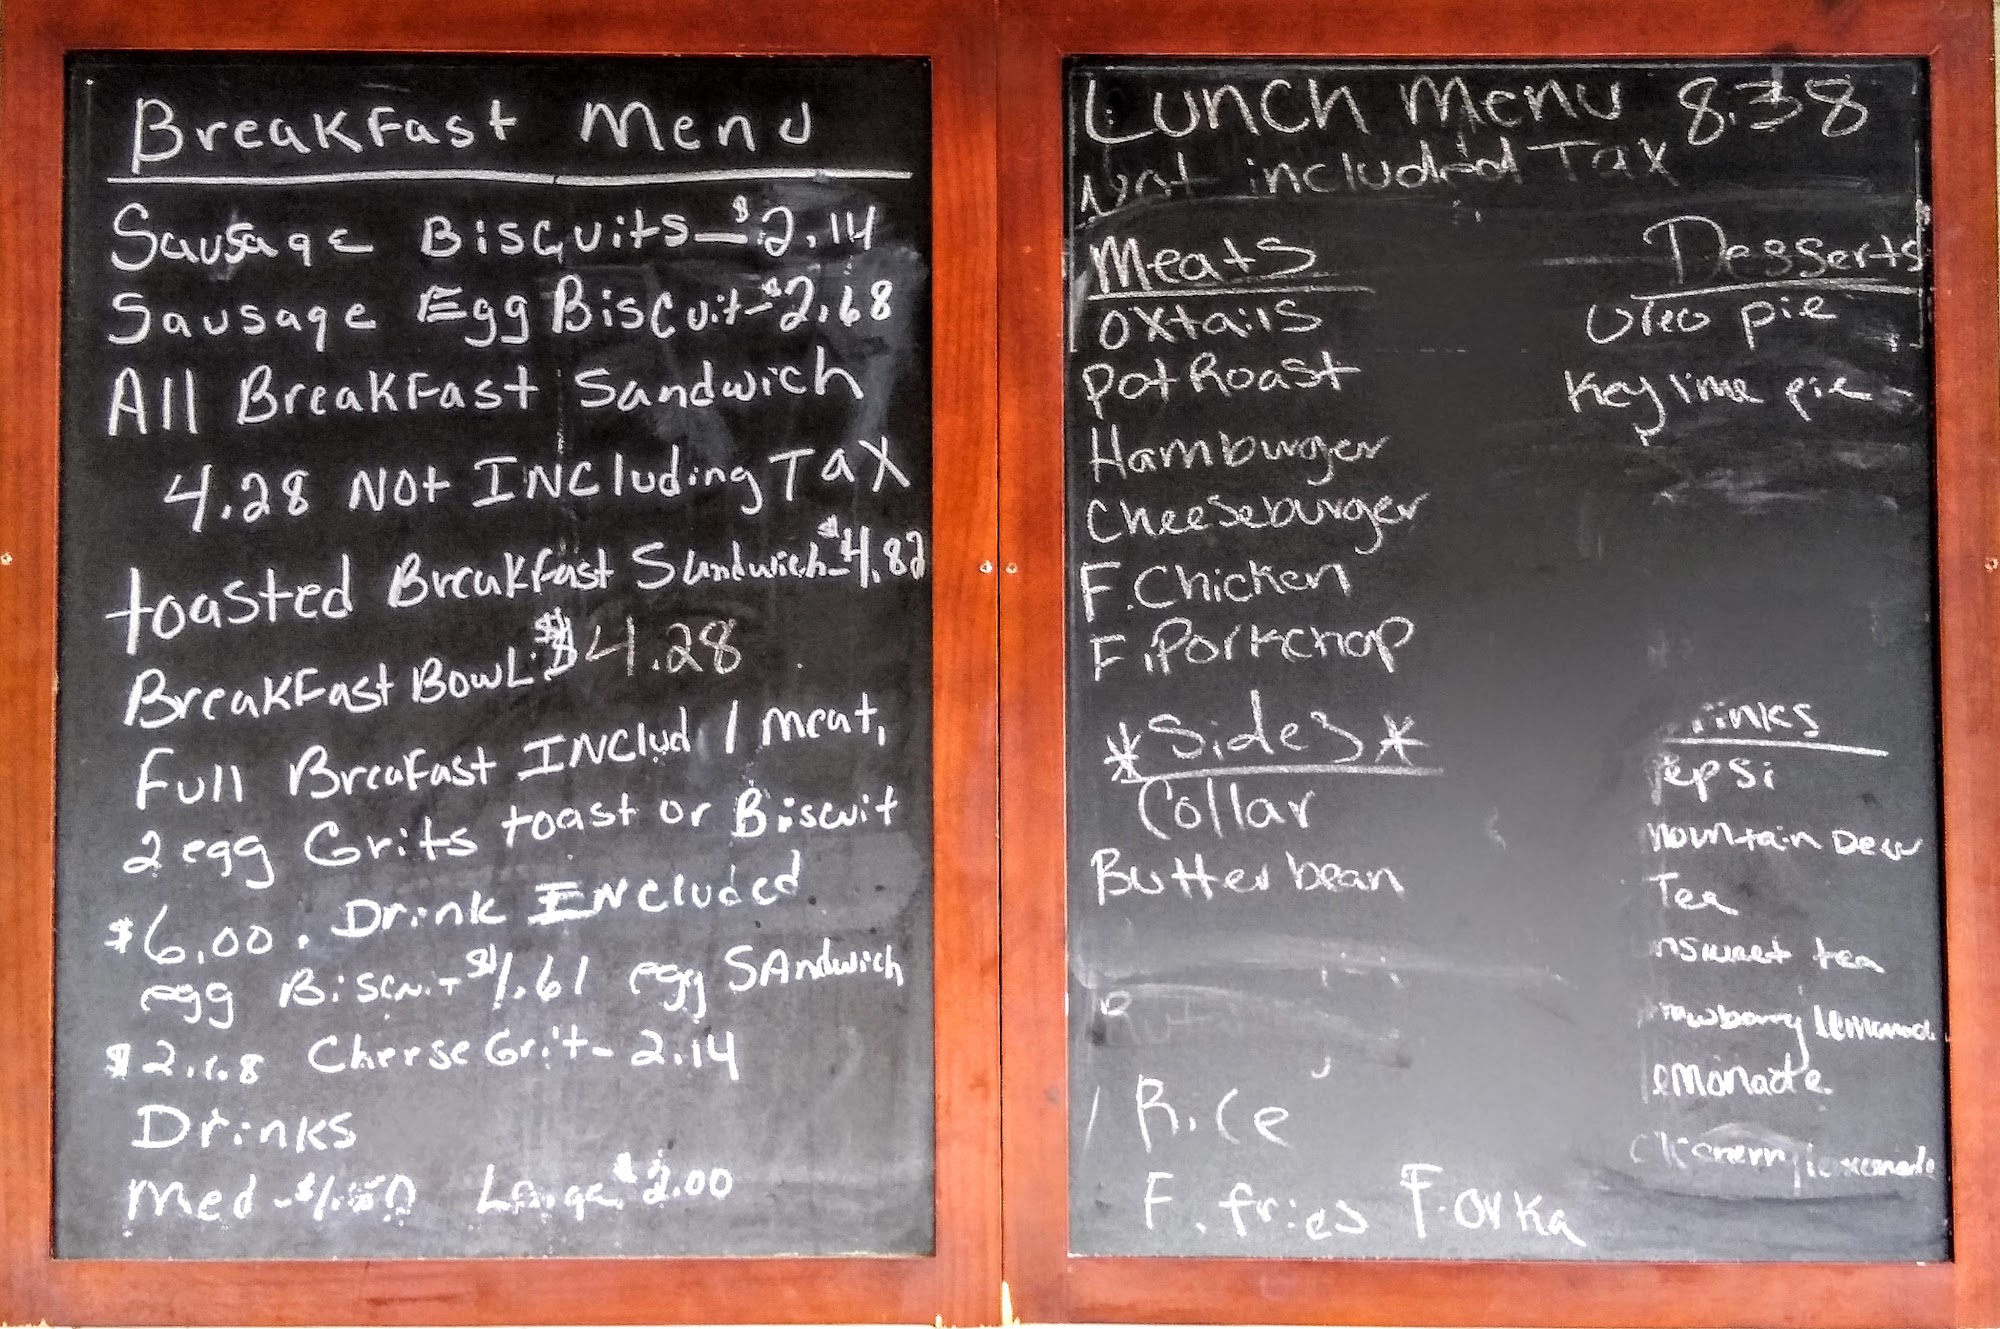 Breakfast Menu
Sausage Biscuits - $2.14
Sausage Egg Biscuit - $2.68
All Breakfast Sandwich
4.28 Not Including Tax
toasted Breakfast Sandwich - $4.82
Breakfast Bowl: $4.28
Full Breafast Includ 1 meat,
2 egg Grits toast or Biscuit
$6.00. Drink Included
egg Biscuit $1.61 egg Sandwich
Cheese Grit - 2.14
Drinks
Med - Large $2.00
Lunch Menu 8.38
Not included Tax
Meats
Oxtails
Pot Roast
Hamburger
Cheeseburger
F. Chicken
F. Porkchop
*Sides*
Collar
Butter bean
Rice
F. fries F. Orka
Desserts
Oreo pie
Key lime pie
rinks
Pepsi
Mountain Dew
Tea
nsweet tea
rawberry lemonade
lemonade